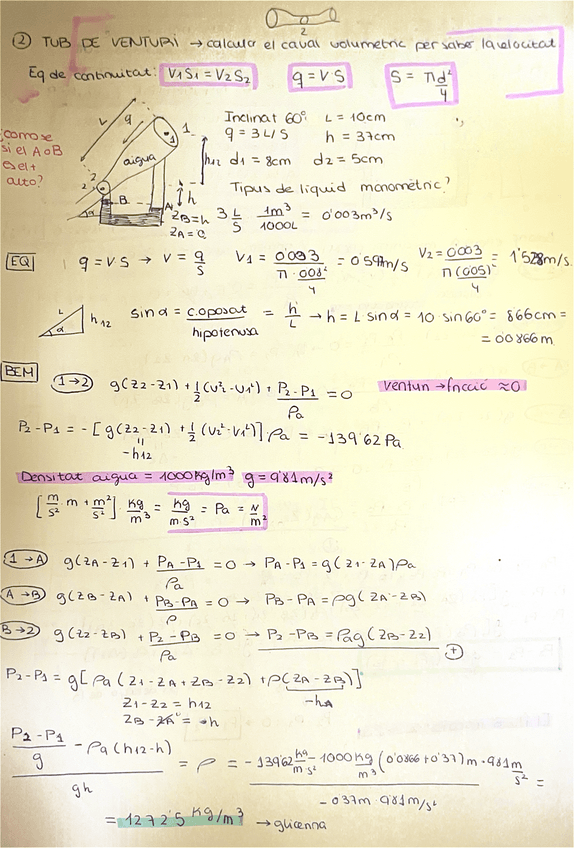 2
② TUB DE VENTURI → calcula el cabal volumetric per saber la velocitat
Eq de continuitat: V1S1 = V2S2 q = V·S S = πd²/4
como se si el A o B es el + alto?
L q 1 1 aigua h12 2 2 B A h α
ZB = h
ZA = 0
Inclinat 60° L = 10cm
q = 3 L/S h = 37cm
d1 = 8cm d2 = 5cm
Tipus de líquid manomètric?
3 L/S 1m³/1000L = 0'003m³/s
EQ q = V S → V = q/S V1 = 0'003/(π·0'08²/4) = 0'597m/s V2 = 0'003/(π(0'05)²/4) = 1'528m/s
L h12 α sin α = c.oposat/hipotenusa = h/L → h = L sin α = 10·sin 60° = 8'66cm =
= 0'0866m
BEM
1→2 g(Z2-Z1) + ½(V2²-V1²) + (P2-P1)/ρa = 0 venturi → fricció ≈ 0
P2-P1 = -[g(Z2-Z1) + ½(V2²-V1²)]·ρa = -139'62 Pa
-h12
Densitat aigua = 1000Kg/m³ g = 9'81m/s²
[m/s² m + m²/s²] · Kg/m³ = Kg/m·s² = Pa = N/m²
1→A g(ZA-Z1) + (PA-P1)/ρa = 0 → PA-P1 = g(Z1-ZA)ρa
A→B g(ZB-ZA) + (PB-PA)/ρ = 0 → PB-PA = ρg(ZA-ZB)
B→2 g(Z2-ZB) + (P2-PB)/ρa = 0 → P2-PB = ρag(ZB-Z2)
+
P2-P1 = g[ρa(Z1-ZA+ZB-Z2) + ρ(ZA-ZB)]
Z1-Z2 = h12 -h
ZB-ZA = h
((P2-P1)/g - ρa(h12+h))/gh = ρ = (-139'62 Kg/m·s² - 1000 Kg/m³ (0'0866+0'37)m·9'81 m/s²)/(-0'37m·9'81m/s²) =
= 1272'5 Kg/m³ → glicerina